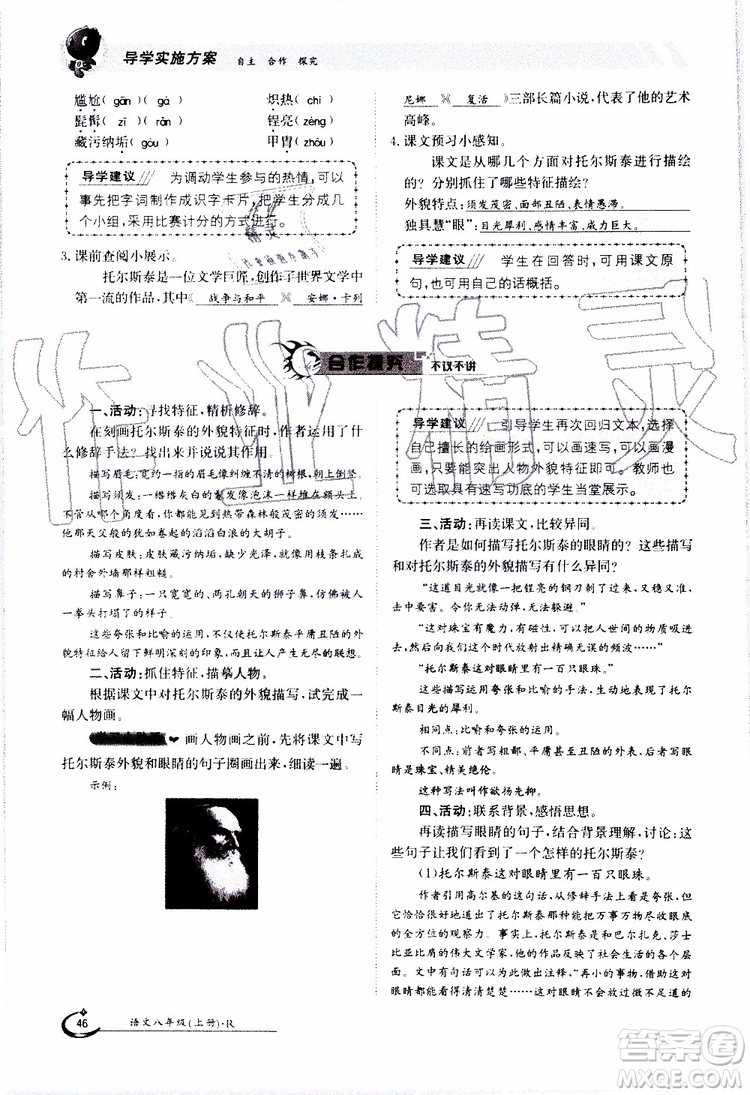 导学实施方案 自主 合作 探究
尴尬(gān)(gà) 炽热(chì)
髭髯(zī)(rán) 锃亮(zèng)
藏污纳垢(gòu) 甲胄(zhòu)
导学建议 为调动学生参与的热情,可以
事先把字词制作成识字卡片,把学生分成几
个小组,采用比赛计分的方式进行。
3. 课前查阅小展示。
托尔斯泰是一位文学巨匠,创作了世界文学中
第一流的作品,其中《 战争与和平 》《 安娜·卡列
一、活动:寻找特征,精析修辞。
在刻画托尔斯泰的外貌特征时,作者运用了什
么修辞手法?找出来并说说这样写的好处。
描写眉毛:宽约一指的眉毛像纠缠不清的树根,朝上倒竖。
描写须发:一绺绺灰白的鬈发像泡沫一样堆在额头上。
不管从哪个角度看,你都能见到热带森林般茂密的须发。
他那天父般的犹如卷起的滔滔白浪的大胡子。
描写皮肤:皮肤藏污纳垢,缺少光泽,就像用枝条扎成
的村舍外墙那样粗糙。
描写鼻子:一只宽宽的、两孔朝天的狮子鼻,仿佛被人一
拳头打塌了的样子。
这些夸张和比喻的运用,不仅使托尔斯泰平庸丑陋的外貌
给人留下鲜明深刻的印象,而且让人产生奇特有趣的联想。
二、活动:抓住特征,描摹人物。
根据课文中对托尔斯泰的外貌描写,试完成一
幅人物画。
画人物画之前,先将课文中写
托尔斯泰外貌和眼睛的句子圈画出来,细细读一遍。
示例:
46 语文八年级(上册)·R
尼娜 》《 复活 》三部长篇小说,代表了他的艺术
高峰。
4. 课文预习小感知。
课文是从哪几个方面对托尔斯泰进行描绘
的?分别抓住了哪些特征描绘?
外貌特点:须发茂密、面部丑陋、表情愚滞。
独具慧“眼”:目光犀利、感情丰富、威力巨大。
导学建议 学生在回答时,可用课文原
句,也可用自己的话概括。
合作探究 不议不讲
导学建议 引导学生再次回归文本,选择
自己擅长的绘画形式,可以画速写,可以画漫
画,只要能突出人物外貌特征即可。教师也
可选取具有速写功底的学生当堂展示。
三、活动:再读课文,比较异同。
作者是如何描写托尔斯泰的眼睛的?这些描写
和对托尔斯泰外貌的描写有什么异同?
“这道目光就像一把锃亮的钢刀刺了过来,又稳又准,击
中要害。令你无法动弹,无法躲避。”
“这对珠宝有魔力,有磁性,可以把人世间的物质吸进
去,然后向我们这个时代放射出精确无误的频波……”
“托尔斯泰这对眼睛里有一百只眼珠。”
这些描写运用了夸张和比喻的手法,生动形象地写出了
托尔斯泰目光的犀利。
相同点:比喻和夸张的运用。
不同点:前者写粗鄙、平庸甚至丑陋的外表,后者写眼
睛是珠宝、精美绝伦。
这种写法叫作欲扬先抑。
四、活动:联系背景,感悟思想。
再读描写眼睛的句子,结合背景理解,讨论:这
些句子让我们看到了一个怎样的托尔斯泰?
(1)托尔斯泰这对眼睛里有一百只眼珠。
作者引用高尔基的这句话,从修辞手法上来说是夸张,但
它恰恰很好地道出了托尔斯泰那种能把万事万物尽收眼底的
全方位的观察力。正因为如此,托尔斯泰和巴尔扎克、莎士
比亚比肩的伟大文学家,其作品反映了社会生活的方方面
面。文中有句话可以做出注释,“再小的事物,借着这对
眼睛都能看得清清楚楚……哪怕是微不足道的细枝末节”
作业精灵
答案圈